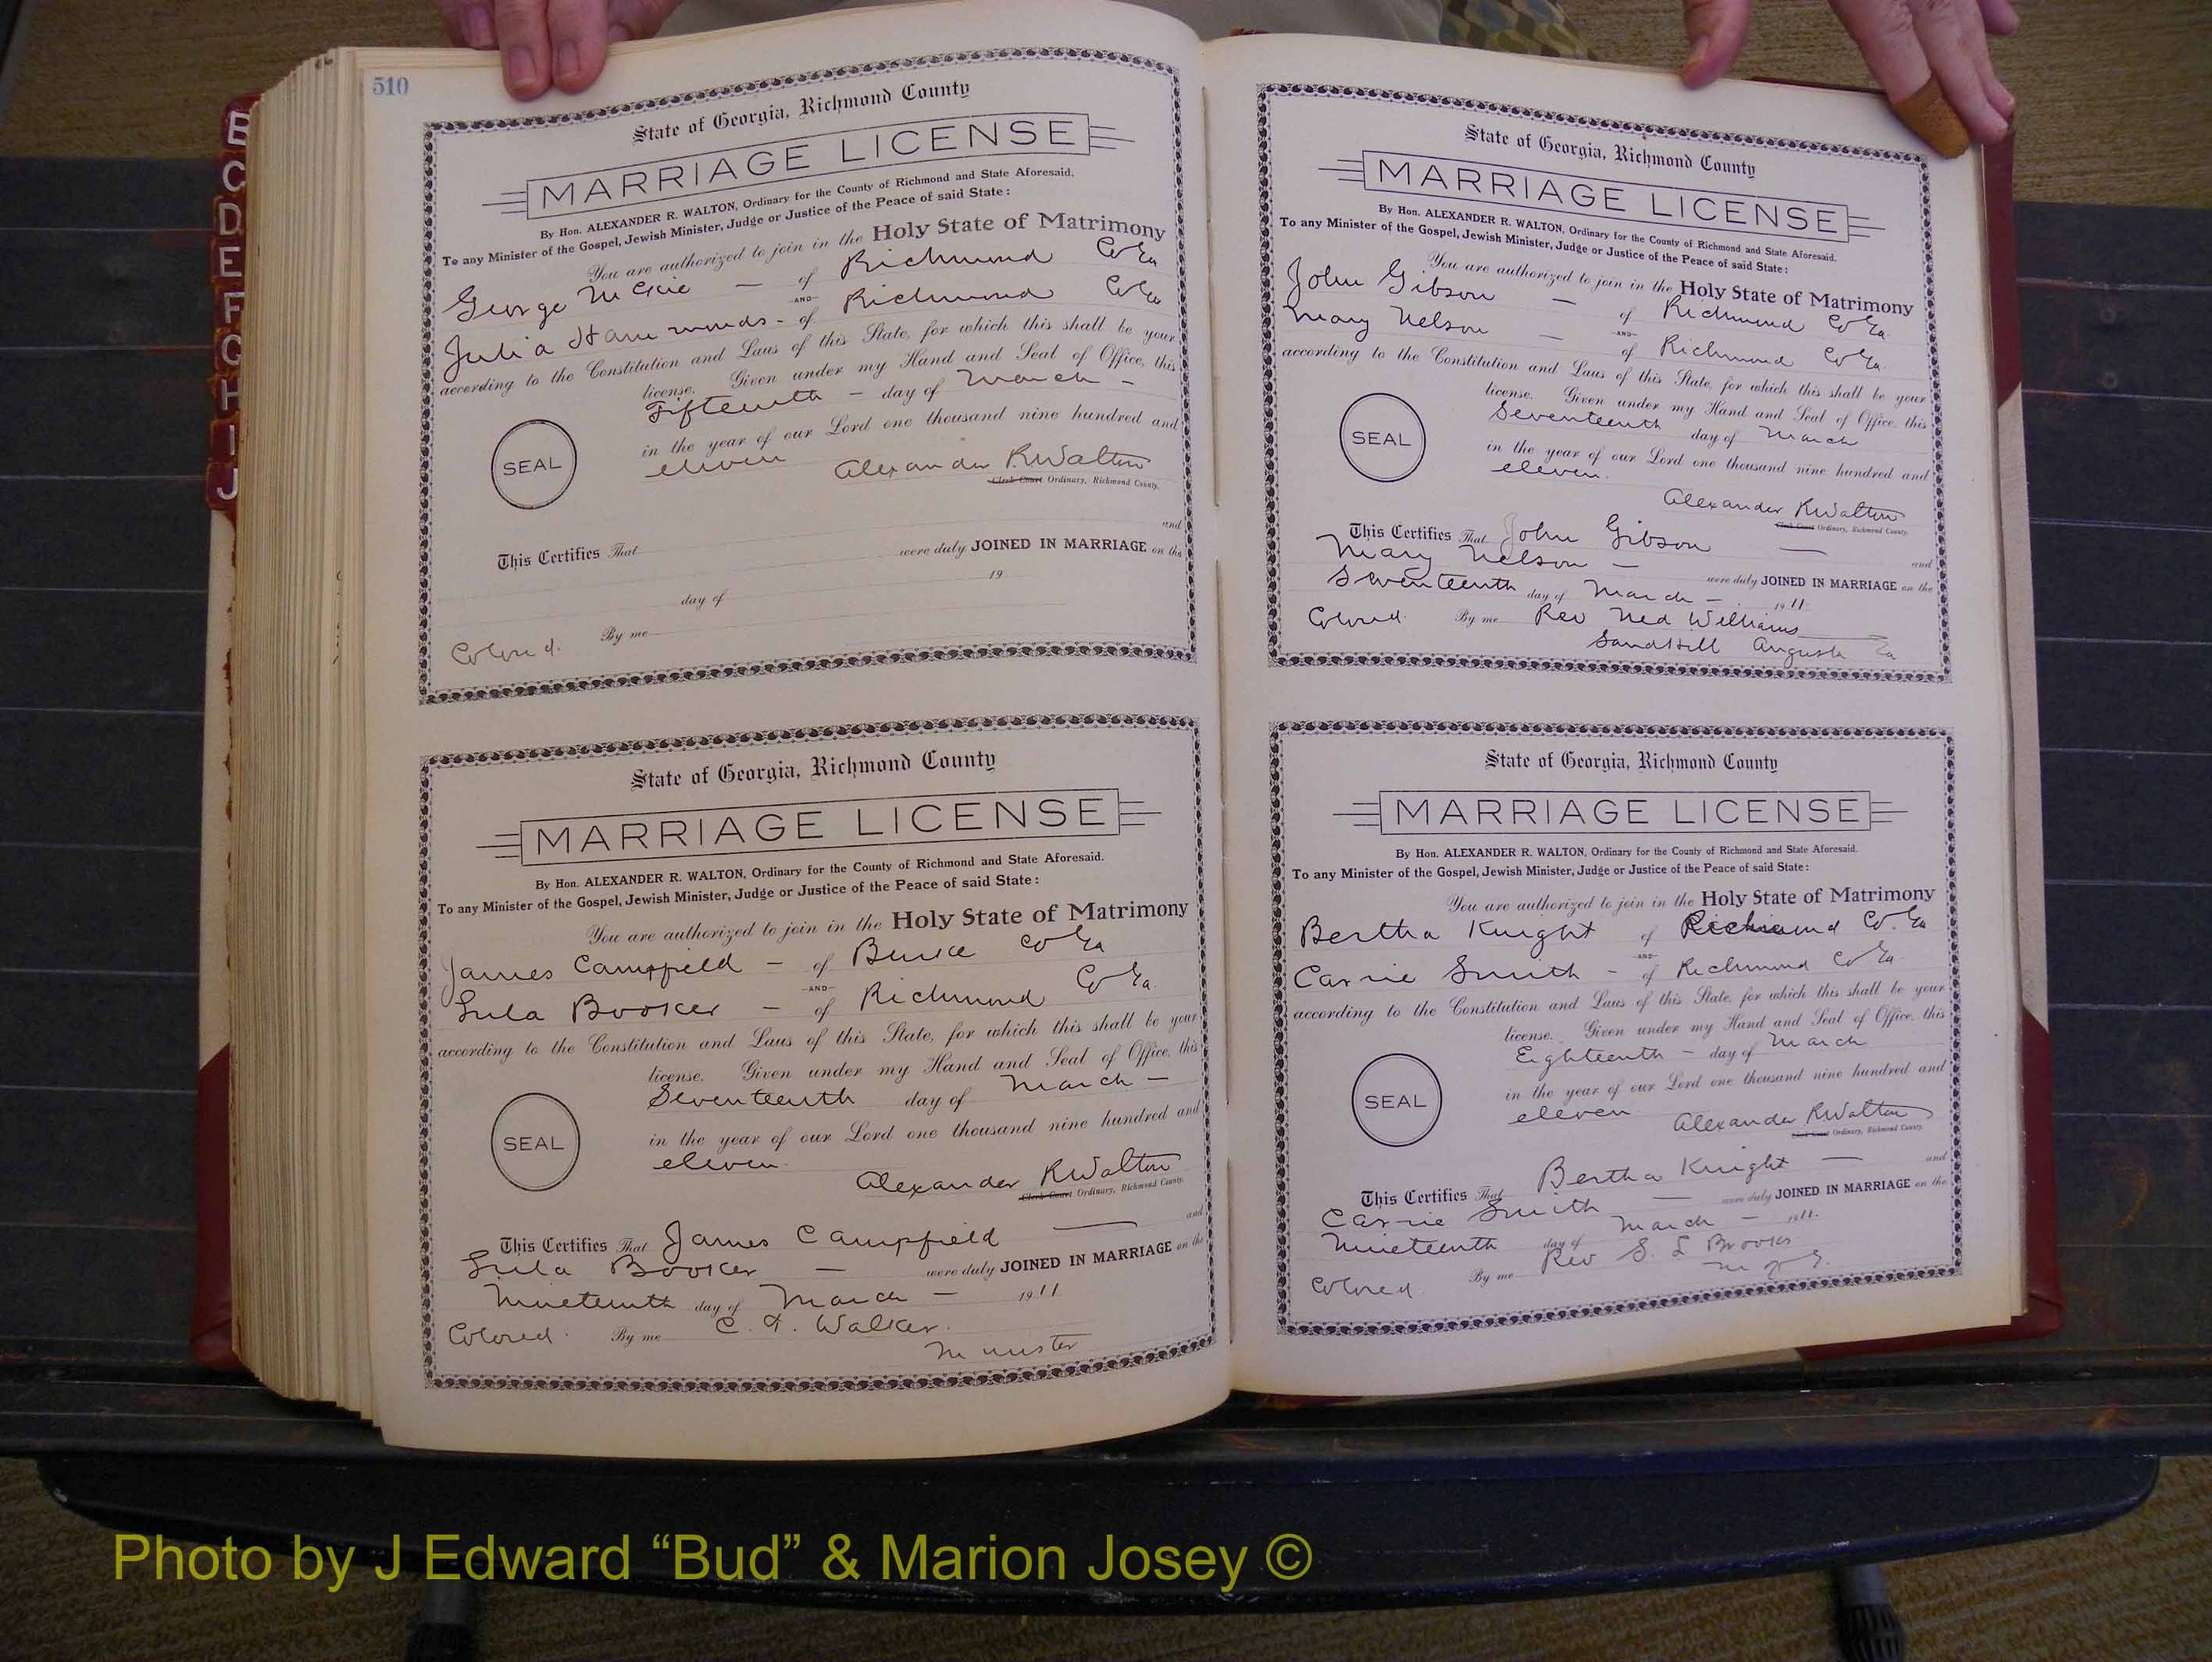 510
B
C
D
E
F
G
H
I
J
State of Georgia, Richmond County
MARRIAGE LICENSE
By Hon. ALEXANDER R. WALTON, Ordinary for the County of Richmond and State Aforesaid.
To any Minister of the Gospel, Jewish Minister, Judge or Justice of the Peace of said State:
You are authorized to join in the Holy State of Matrimony
George McKie — of Richmond Co Ga
-AND-
Julia Hammonds - of Richmond Co Ga
according to the Constitution and Laws of this State, for which this shall be your
license. Given under my Hand and Seal of Office, this
Fifteenth — day of March —
in the year of our Lord one thousand nine hundred and
eleven
SEAL
Alexander R Walton
Clerk Court Ordinary, Richmond County.
This Certifies That and
were duly JOINED IN MARRIAGE on the
day of 19
Colored. By me
State of Georgia, Richmond County
MARRIAGE LICENSE
By Hon. ALEXANDER R. WALTON, Ordinary for the County of Richmond and State Aforesaid.
To any Minister of the Gospel, Jewish Minister, Judge or Justice of the Peace of said State:
You are authorized to join in the Holy State of Matrimony
James Campfield — of Burke Co Ga
-AND-
Lula Booker — of Richmond Co Ga.
according to the Constitution and Laws of this State, for which this shall be your
license. Given under my Hand and Seal of Office, this
Seventeenth day of March —
in the year of our Lord one thousand nine hundred and
eleven.
SEAL
Alexander R Walton
Clerk Court Ordinary, Richmond County.
This Certifies That James Campfield — and
Lula Booker — were duly JOINED IN MARRIAGE on the
Nineteenth day of March — 1911
Colored. By me C. T. Walker.
Minister
State of Georgia, Richmond County
MARRIAGE LICENSE
By Hon. ALEXANDER R. WALTON, Ordinary for the County of Richmond and State Aforesaid.
To any Minister of the Gospel, Jewish Minister, Judge or Justice of the Peace of said State:
You are authorized to join in the Holy State of Matrimony
John Gibson — of Richmond Co Ga.
-AND-
Mary Nelson — of Richmond Co Ga.
according to the Constitution and Laws of this State, for which this shall be your
license. Given under my Hand and Seal of Office, this
Seventeenth day of March
in the year of our Lord one thousand nine hundred and
eleven.
SEAL
Alexander R Walton
Clerk Court Ordinary, Richmond County.
This Certifies That John Gibson — and
Mary Nelson — were duly JOINED IN MARRIAGE on the
Seventeenth day of March — 1911
Colored. By me Rev Ned Williams
Sand Hill Augusta Ga
State of Georgia, Richmond County
MARRIAGE LICENSE
By Hon. ALEXANDER R. WALTON, Ordinary for the County of Richmond and State Aforesaid.
To any Minister of the Gospel, Jewish Minister, Judge or Justice of the Peace of said State:
You are authorized to join in the Holy State of Matrimony
Bertha Knight of Richmond Co. Ga
-AND-
Carrie Smith - of Richmond Co Ga.
according to the Constitution and Laws of this State, for which this shall be your
license. Given under my Hand and Seal of Office, this
Eighteenth — day of March
in the year of our Lord one thousand nine hundred and
eleven.
SEAL
Alexander R Walton
Clerk Court Ordinary, Richmond County.
This Certifies That Bertha Knight — and
Carrie Smith — were duly JOINED IN MARRIAGE on the
Nineteenth day of March — 1911.
Colored. By me Rev S. L Brooks
M. G.
Photo by J Edward “Bud” & Marion Josey ©